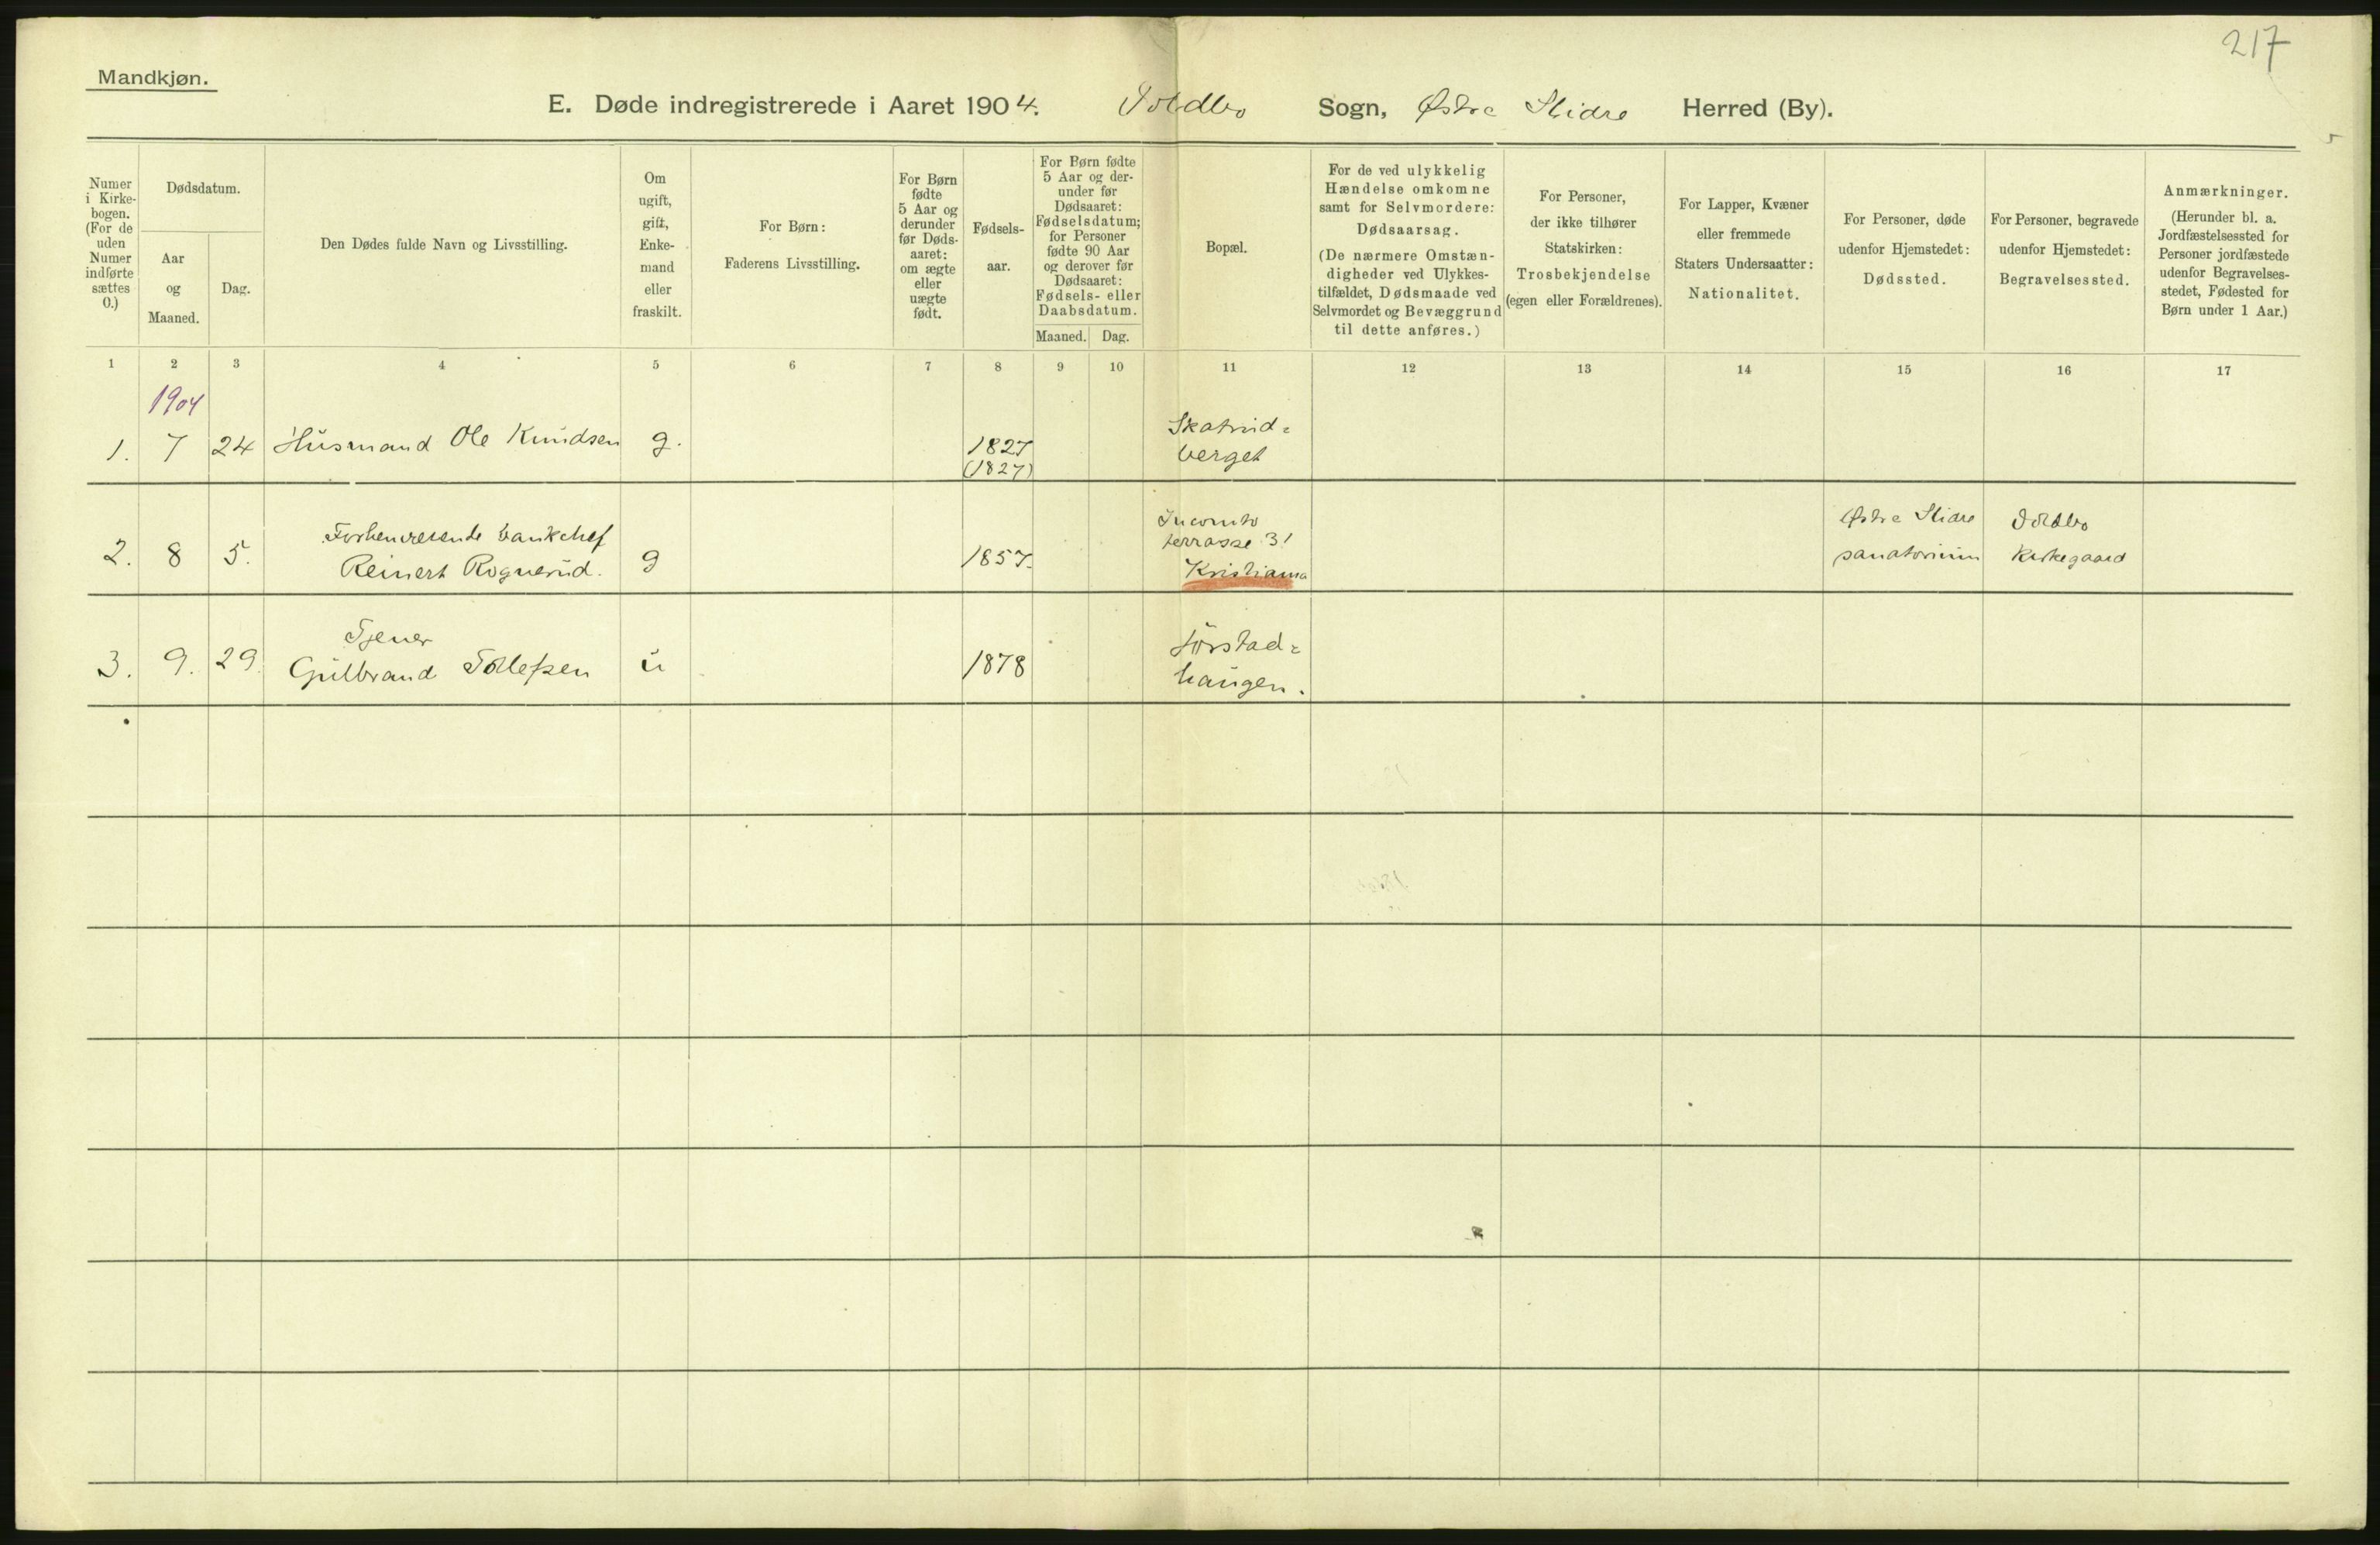 217
Mandkjøn.
E. Døde indregistrerede i Aaret 1904. Voldbo Sogn, Østre Slidre Herred (By).
Numer i Kirke-bogen. (For de uden Numer indførte sættes 0.)
Dødsdatum.
Aar og Maaned.
Dag.
Den Dødes fulde Navn og Livsstilling.
Om ugift, gift, Enke-mand eller fraskilt.
For Børn: Faderens Livsstilling.
For Børn fødte 5 Aar og derunder før Døds-aaret: om ægte eller uægte født.
Fødsels-aar.
For Børn fødte 5 Aar og der-under før Dødsaaret: Fødselsdatum; for Personer fødte 90 Aar og derover før Dødsaaret: Fødsels- eller Daabsdatum.
Maaned. Dag.
Bopæl.
For de ved ulykkelig Hændelse omkomne samt for Selvmordere: Dødsaarsag. (De nærmere Omstæn-digheder ved Ulykkes-tilfældet, Dødsmaade ved Selvmordet og Bevæggrund til dette anføres.)
For Personer, der ikke tilhører Statskirken: Trosbekjendelse (egen eller Forældrenes).
For Lapper, Kvæner eller fremmede Staters Undersaatter: Nationalitet.
For Personer, døde udenfor Hjemstedet: Dødssted.
For Personer, begravede udenfor Hjemstedet: Begravelsessted.
Anmærkninger. (Herunder bl. a. Jordfæstelsessted for Personer jordfæstede udenfor Begravelses-stedet, Fødested for Børn under 1 Aar.)
1 2 3 4 5 6 7 8 9 10 11 12 13 14 15 16 17
1904
1. 7 24 Husmand Ole Knudsen g. 1827 (1827) Skatrud= berget
2. 8 5. Forhenværende bankchef Reinert Rognerud. g 1857. Incornito terrasse 31 Kristiania Østre Slidre sanatorium Voldbo Kirkegaard
3. 9. 29. Tjener Gulbrand Tollefsen u 1878 Jørstad= haugen.